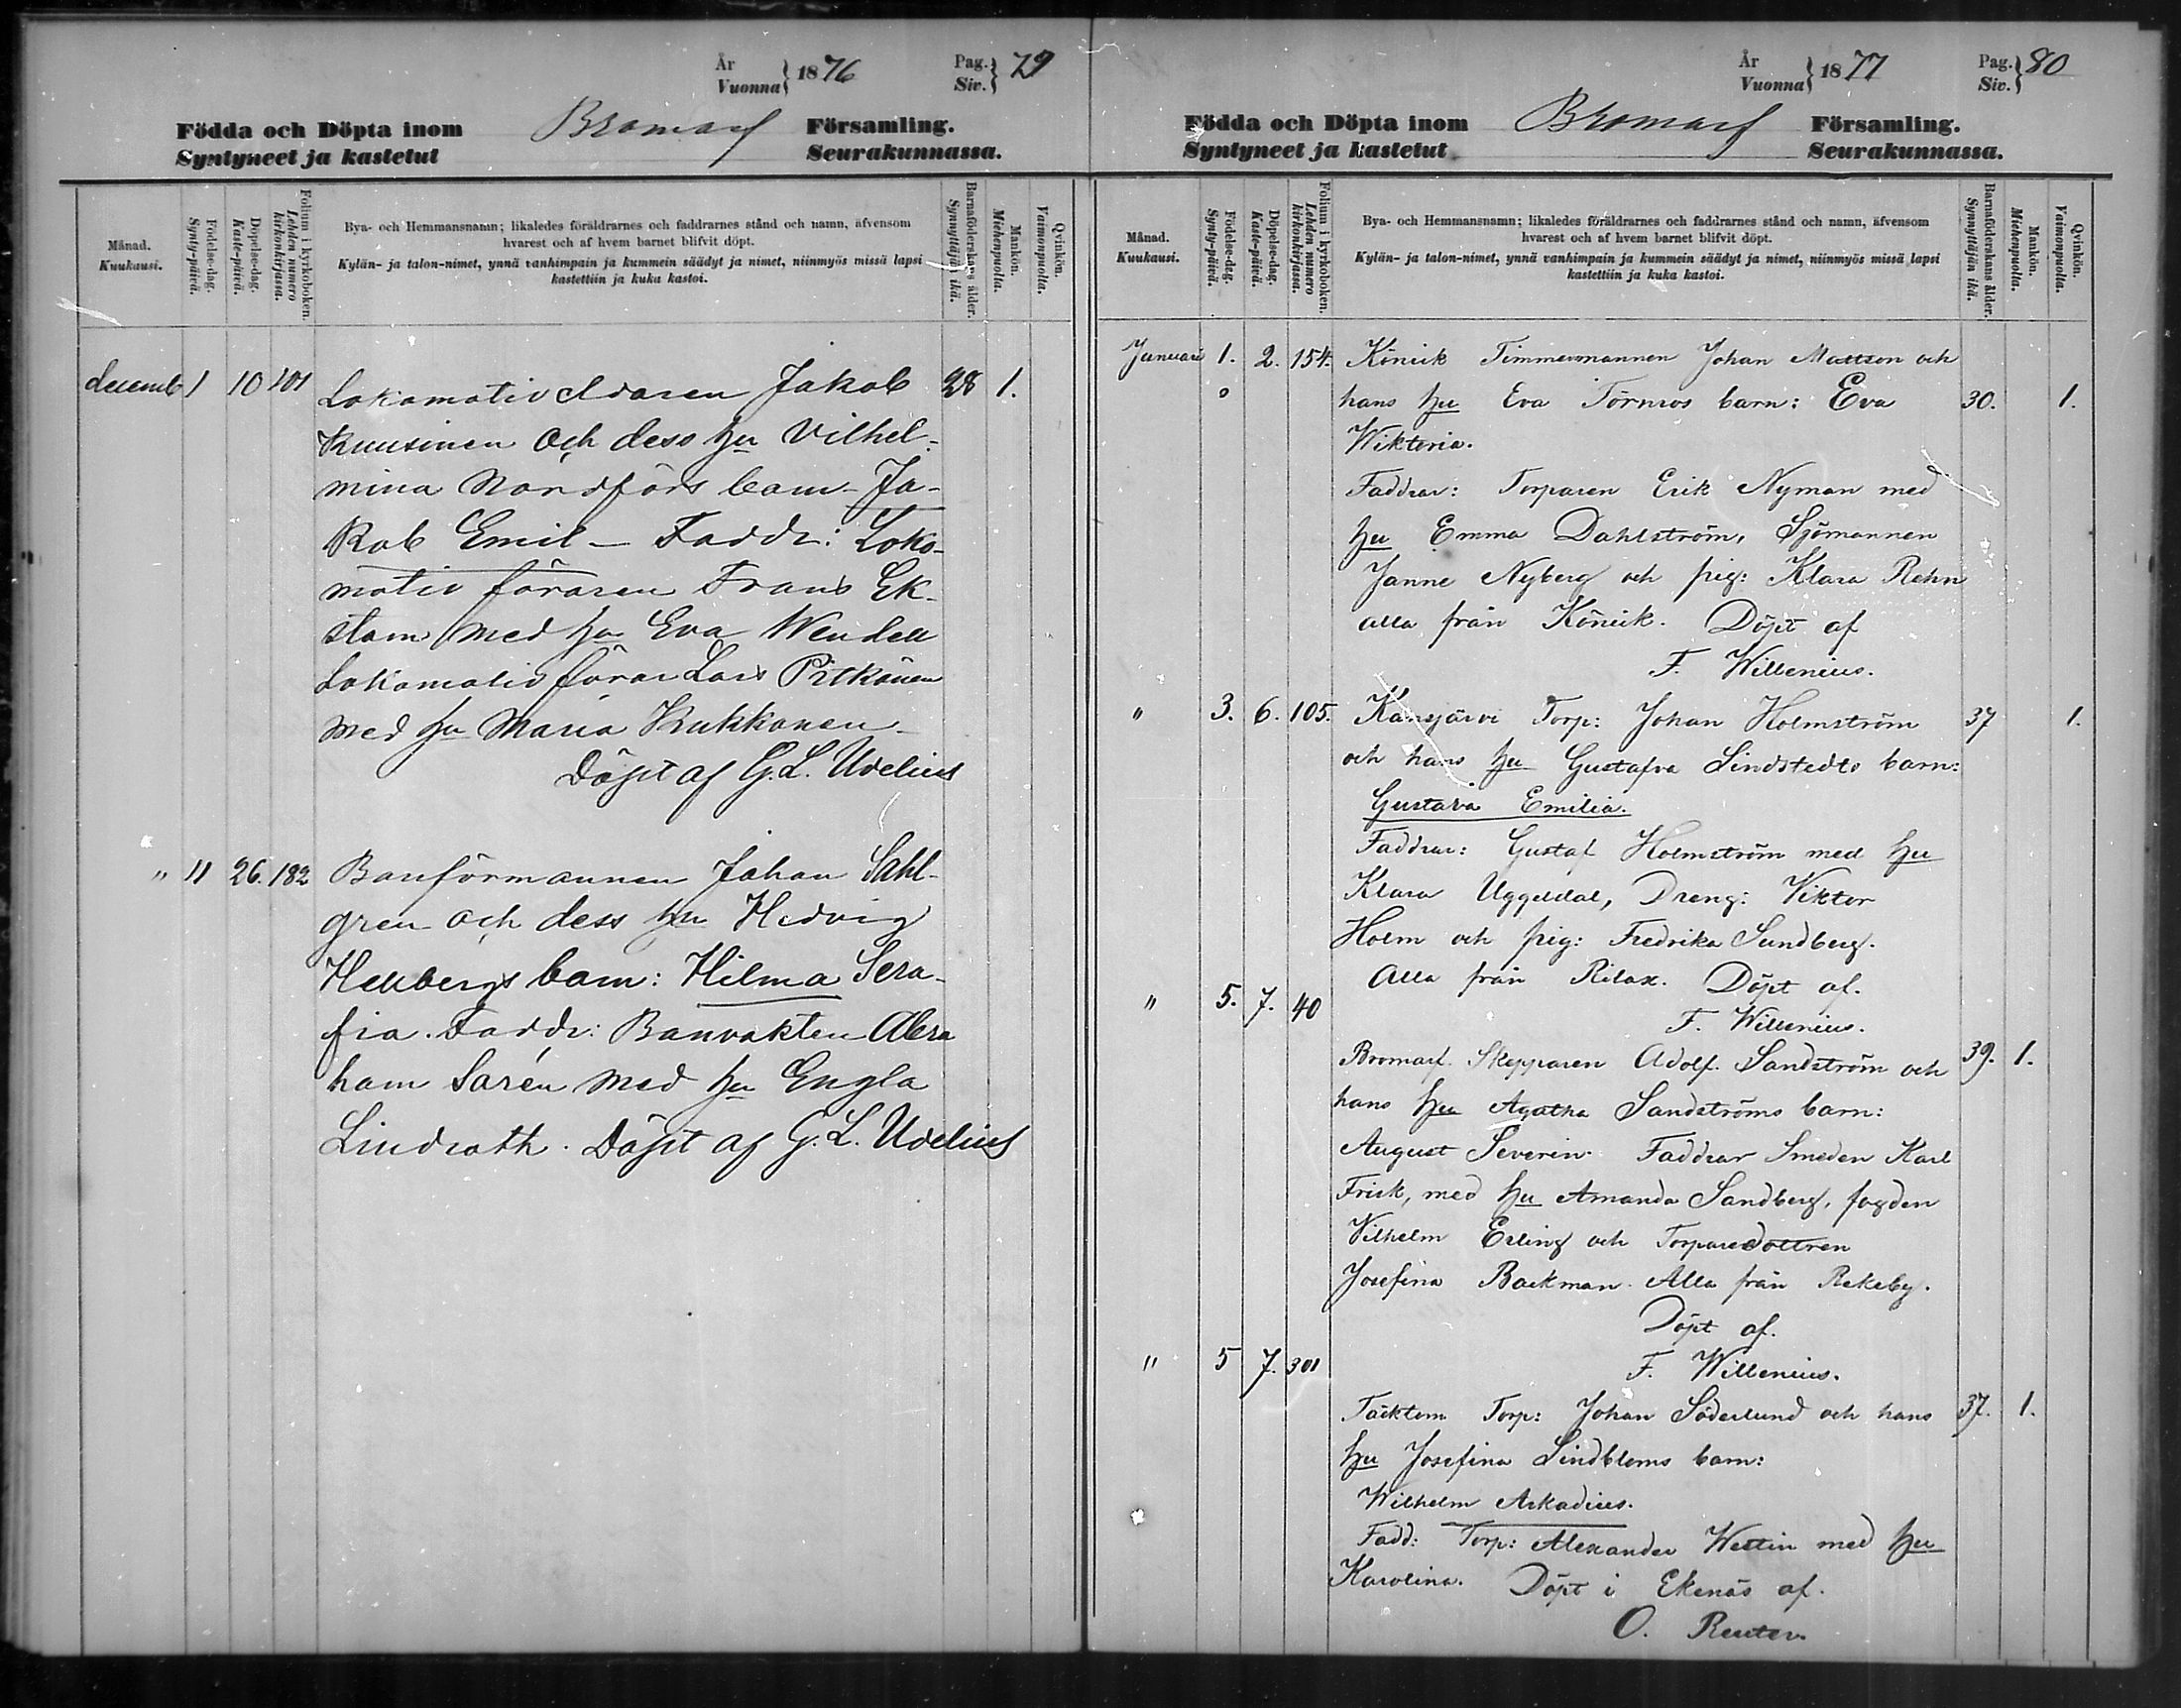 År
Vuonna } 1876
Pag.
Siv. } 79
Födda och Döpta inom Bromarf Församling.
Syntyneet ja kastetut Seurakunnassa.
Månad.
Kuukausi.
Födelse-dag.
Synty-päivä.
Döpelse-dag.
Kaste-päivä.
Folium i kyrkoboken.
Lehden numero
kirkonkirjassa.
Bya- och Hemmansnamn; likaledes föräldrarnes och faddrarnes stånd och namn, äfvensom
hvarest och af hvem barnet blifvit döpt.
Kylän- ja talon-nimet, ynnä vanhimpain ja kummein säädyt ja nimet, niinmyös missä lapsi
kastettiin ja kuka kastoi.
Barnaföderskans ålder.
Synnyttäjän ikä.
Mankön.
Miehenpuolia.
Qvinkön.
Vaimonpuolia.
decemb 1 10 201 Lokomotiv eldaren Jakob 28 1.
Kuusinen och dess hu Vilhel-
mina Nordförs barn - Ja-
kob Emil - Faddr: Loko-
motiv föraren Frans Ek-
stam med hu Eva Wendell
Lokomotiv förar Lars Pitkänen
med hu Maria Kukkonen -
Döpt af G. L. Udelius
" 11 26. 182 Banförmannen Johan Sahl-
gren och dess hu Hedvig
Hellbergs barn: Hilma Sera-
fia. Faddr: Banvakten Abra
ham Sarén med hu Engla
Lindroth. Döpt af G. L. Udelius
År
Vuonna } 1877
Pag.
Siv. } 80
Födda och Döpta inom Bromarf Församling.
Syntyneet ja kastetut Seurakunnassa.
Månad.
Kuukausi.
Födelse-dag.
Synty-päivä.
Döpelse-dag.
Kaste-päivä.
Folium i kyrkoboken.
Lehden numero
kirkonkirjassa.
Bya- och Hemmansnamn; likaledes föräldrarnes och faddrarnes stånd och namn, äfvensom
hvarest och af hvem barnet blifvit döpt.
Kylän- ja talon-nimet, ynnä vanhimpain ja kummein säädyt ja nimet, niinmyös missä lapsi
kastettiin ja kuka kastoi.
Barnaföderskans ålder.
Synnyttäjän ikä.
Mankön.
Miehenpuolia.
Qvinkön.
Vaimonpuolia.
Januari 1. 2. 154. Köniik Timmermannen Johan Mattson och
hans hu Eva Törnros barn: Eva 30. 1.
Wiktoria.
Faddrar: Torparen Erik Nyman med
hu Emma Dahlström, Sjömannen
Janne Nyberg och pig: Klara Rehn
alla från Köniik. Döpt af
F. Willenius.
" 3. 6. 105. Kansjärvi Torp: Johan Holmström 37 1.
och hans hu Gustafva Lindstedts barn:
Gustava Emilia.
Faddrar: Gustaf Holmström med hu
Klara Uggeldal, Dreng: Viktor
Holm och pig: Fredrika Sundberg.
Alla från Rilax. Döpt af.
" 5. 7. 40 F. Willenius.
Bromarf. Skepparen Adolf. Sandström och 39. 1.
hans hu Agatha Sandströms barn:
August Severin. Faddrar Smeden Karl
Frisk, med hu Amanda Sandberg, fogden
Vilhelm Erling och Torparedottren
Josefina Backman. Alla från Rekeby.
Döpt af.
" 5 7. 301 F. Willenius.
Täcktom Torp: Johan Söderlund och hans 37. 1.
hu Josefina Lindbloms barn:
Wilhelm Arkadius.
Fadd: Torp: Alexander Westin med hu
Karolina. Döpt i Ekenäs af.
O. Reuter.